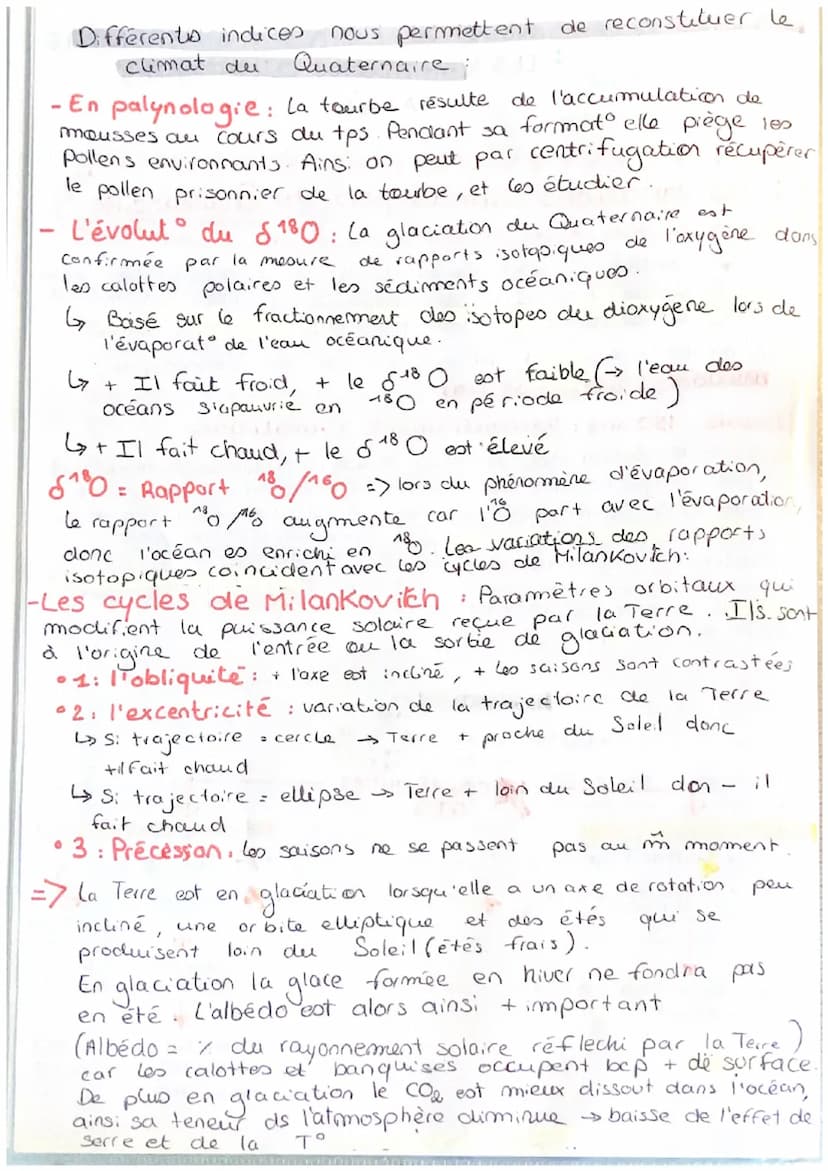 Différents indices nous permettent de reconstituer le
climat du Quaternaire :
- En palynologie : La tourbe résulte de l'accumulation de
mousses au cours du tps. Pendant sa format° elle piège les
pollens environnants. Ainsi on peut par centrifugation récupérer
le pollen prisonnier de la tourbe, et les étudier.
- L'évolut° du δ18O : La glaciation du Quaternaire est
confirmée par la mesure de rapports isotopiques de l'oxygène dans
les calottes polaires et les sédiments océaniques.
↳ Basé sur le fractionnement des isotopes du dioxygène lors de
l'évaporat° de l'eau océanique.
↳ + Il fait froid, + le δ18O est faible (→ l'eau des
océans s'apauvrie en 18O en période froide)
↳ + Il fait chaud, + le δ18O est élevé
δ18O = Rapport 18O/16O => lors du phénomène d'évaporation,
le rapport 18O/16O augmente car l'16O part avec l'évaporation,
donc l'océan es enrichi en 18O. Les variations des rapports
isotopiques coincident avec les cycles de Milankovitch:
- Les cycles de Milankovitch : Paramètres orbitaux qui
modifient la puissance solaire reçue par la Terre. Ils sont
à l'origine de l'entrée ou la sortie de glaciation.
• 1 : l'obliquité : + l'axe est incliné, + les saisons sont contrastées
• 2 : l'excentricité : variation de la trajectoire de la Terre
↳ Si trajectoire = cercle → Terre + proche du Soleil donc
+il fait chaud
↳ Si trajectoire = ellipse → Terre + loin du Soleil don - il
fait chaud
• 3 : Précession : les saisons ne se passent pas au m̂ moment.
=> La Terre est en glaciation lorsqu'elle a un axe de rotation peu
incliné, une orbite elliptique et des étés qui se
produisent loin du Soleil (étés frais).
En glaciation la glace formée en hiver ne fondra pas
en été. L'albédo est alors ainsi + important
(Albédo = % du rayonnement solaire réflechi par la Terre)
car les calottes et banquises occupent bcp + de surface.
De plus en glaciation le CO2 est mieux dissout dans l'océan,
ainsi sa teneur ds l'atmosphère diminue → baisse de l'effet de
serre et de la T°